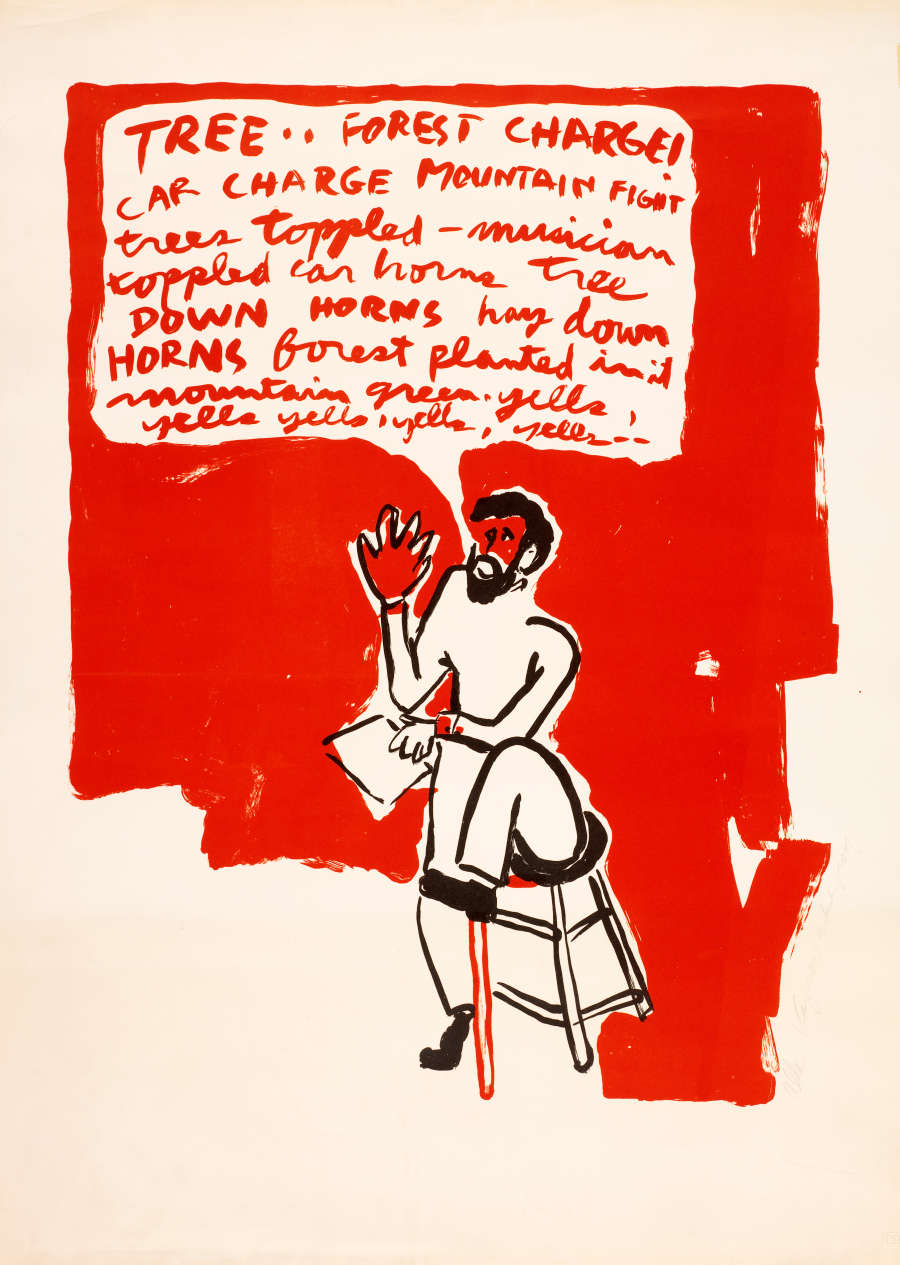 TREE.. FOREST CHARGE!
CAR CHARGE MOUNTAIN FIGHT
trees toppled - musician
toppled car horns tree
DOWN HORNS hay down
HORNS forest planted in it
mountain green. yells,
yells yells, yells, yells--